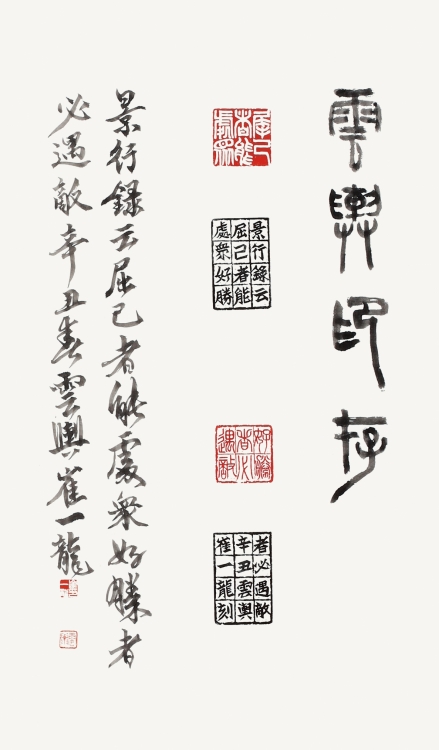 雲輿印存
屈己
者能
處衆
景行錄云
屈己者能
處衆好勝
好勝
者必
遇敵
者必遇敵
辛丑雲輿
崔一龍刻
景行録云屈己者能處衆好勝者
必遇敵辛丑春雲輿崔一龍